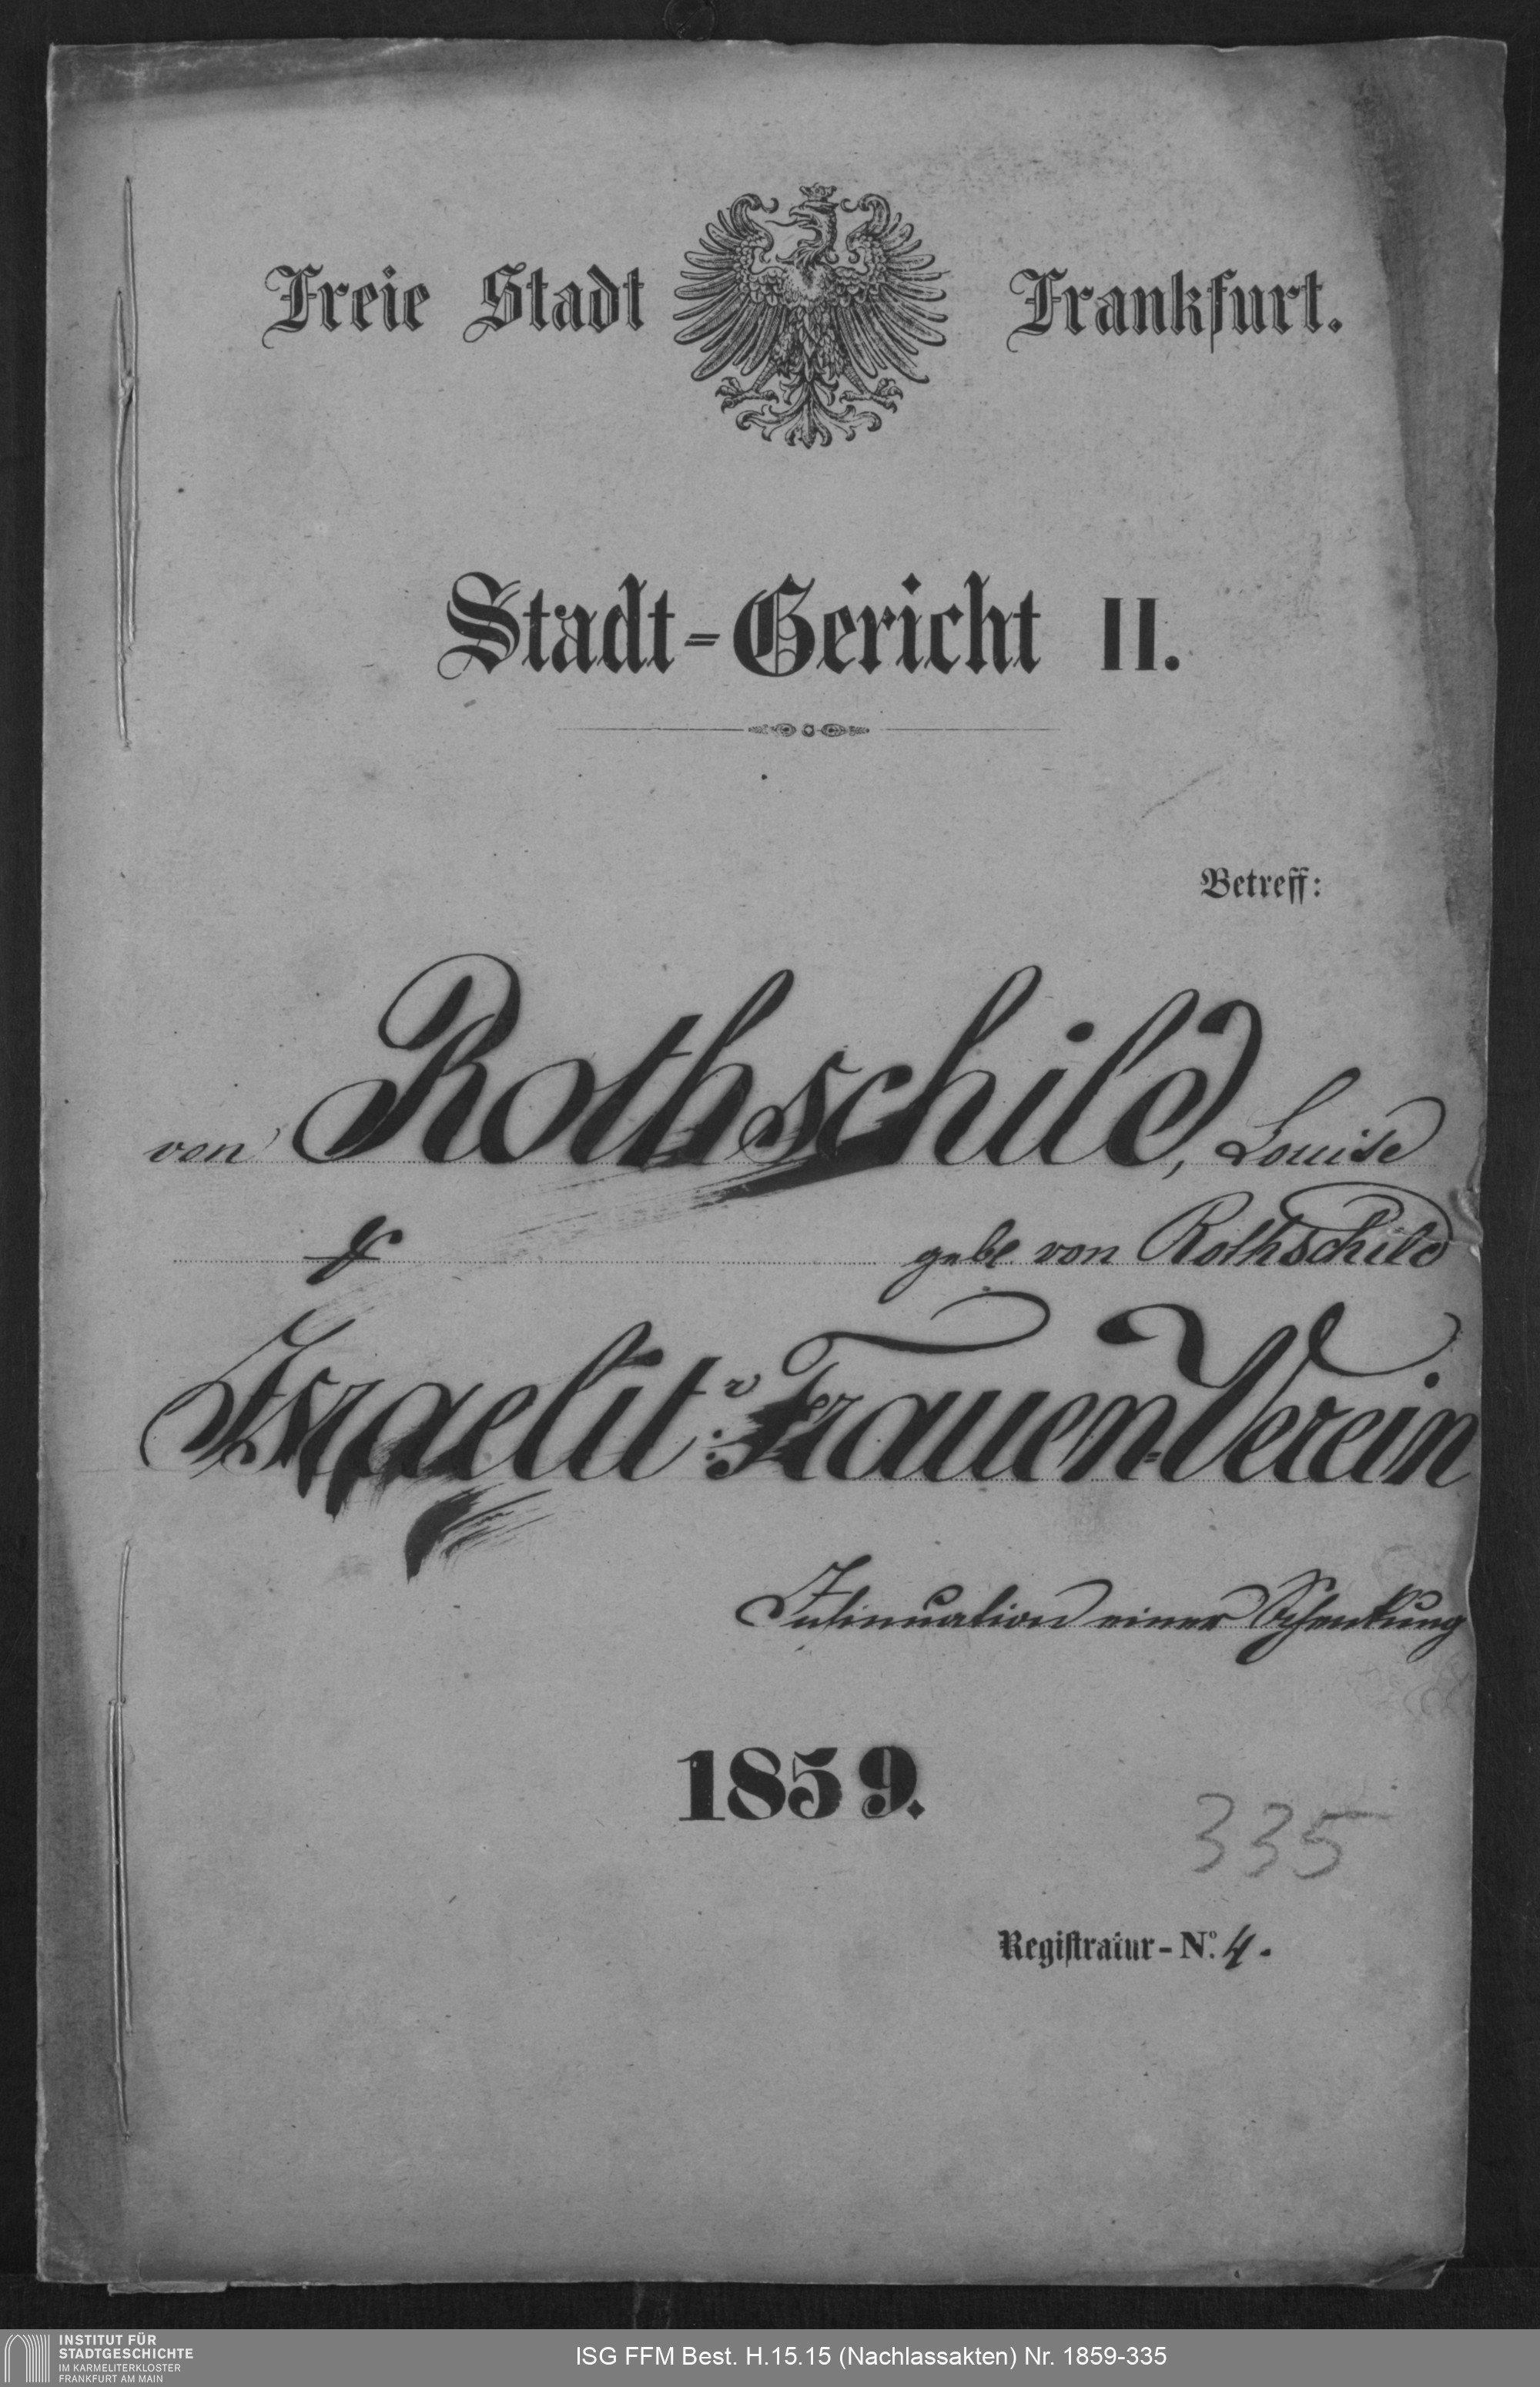 Freie Stadt Frankfurt.
Stadt-Gericht II.
Betreff:
von Rothschild, Louise
& gebl. von Rothschild
Israelit: Frauen-Verein
Insinuation einer Schenkung
1859.
335
Registratur-No. 4.
INSTITUT FÜR
STADTGESCHICHTE
IM KARMELITERKLOSTER
FRANKFURT AM MAIN
ISG FFM Best. H.15.15 (Nachlassakten) Nr. 1859-335